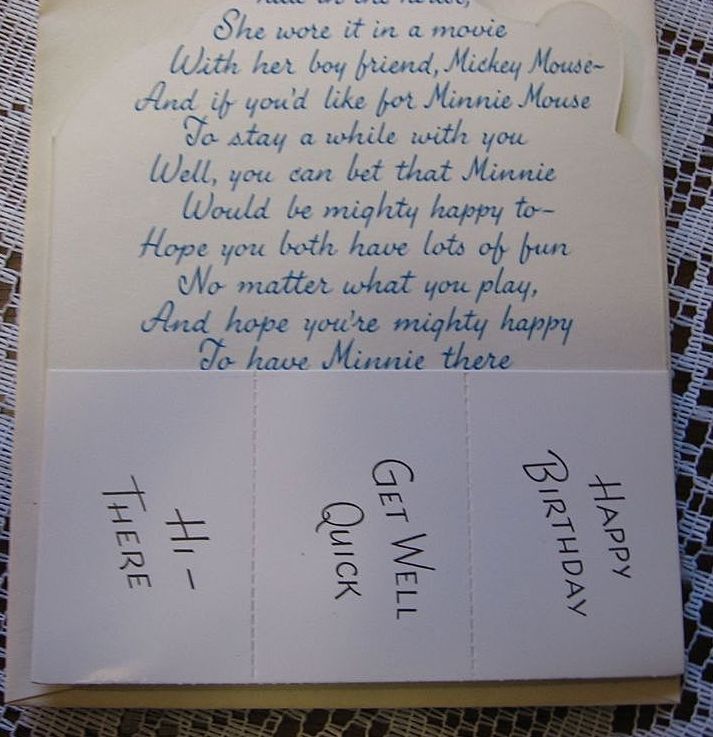 in the house,
She wore it in a movie
With her boy friend, Mickey Mouse~
And if you'd like for Minnie Mouse
To stay a while with you
Well, you can bet that Minnie
Would be mighty happy to~
Hope you both have lots of fun
No matter what you play,
And hope you're mighty happy
To have Minnie there
HI-
THERE
GET WELL
QUICK
HAPPY
BIRTHDAY